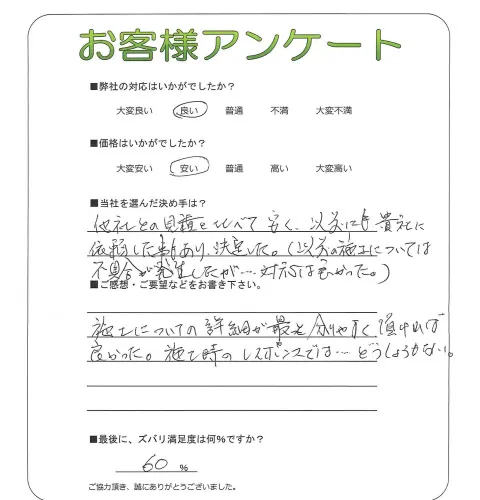 お客様アンケート
■弊社の対応はいかがでしたか?
大変良い 良い 普通 不満 大変不満
■価格はいかがでしたか?
大変安い 安い 普通 高い 大変高い
■当社を選んだ決め手は?
他社との見積と比べて安く、以前にも貴社に
依頼した事あり、決定した。(以前の施工については
不具合が発生したが…対応は良かった。)
■ご感想・ご要望などをお書き下さい。
施工についての詳細が最も分りやすく頂ければ
良かった。施工時のレスポンスでは…どうしようもない。
■最後に、ズバリ満足度は何%ですか?
60 %
ご協力頂き、誠にありがとうございました。